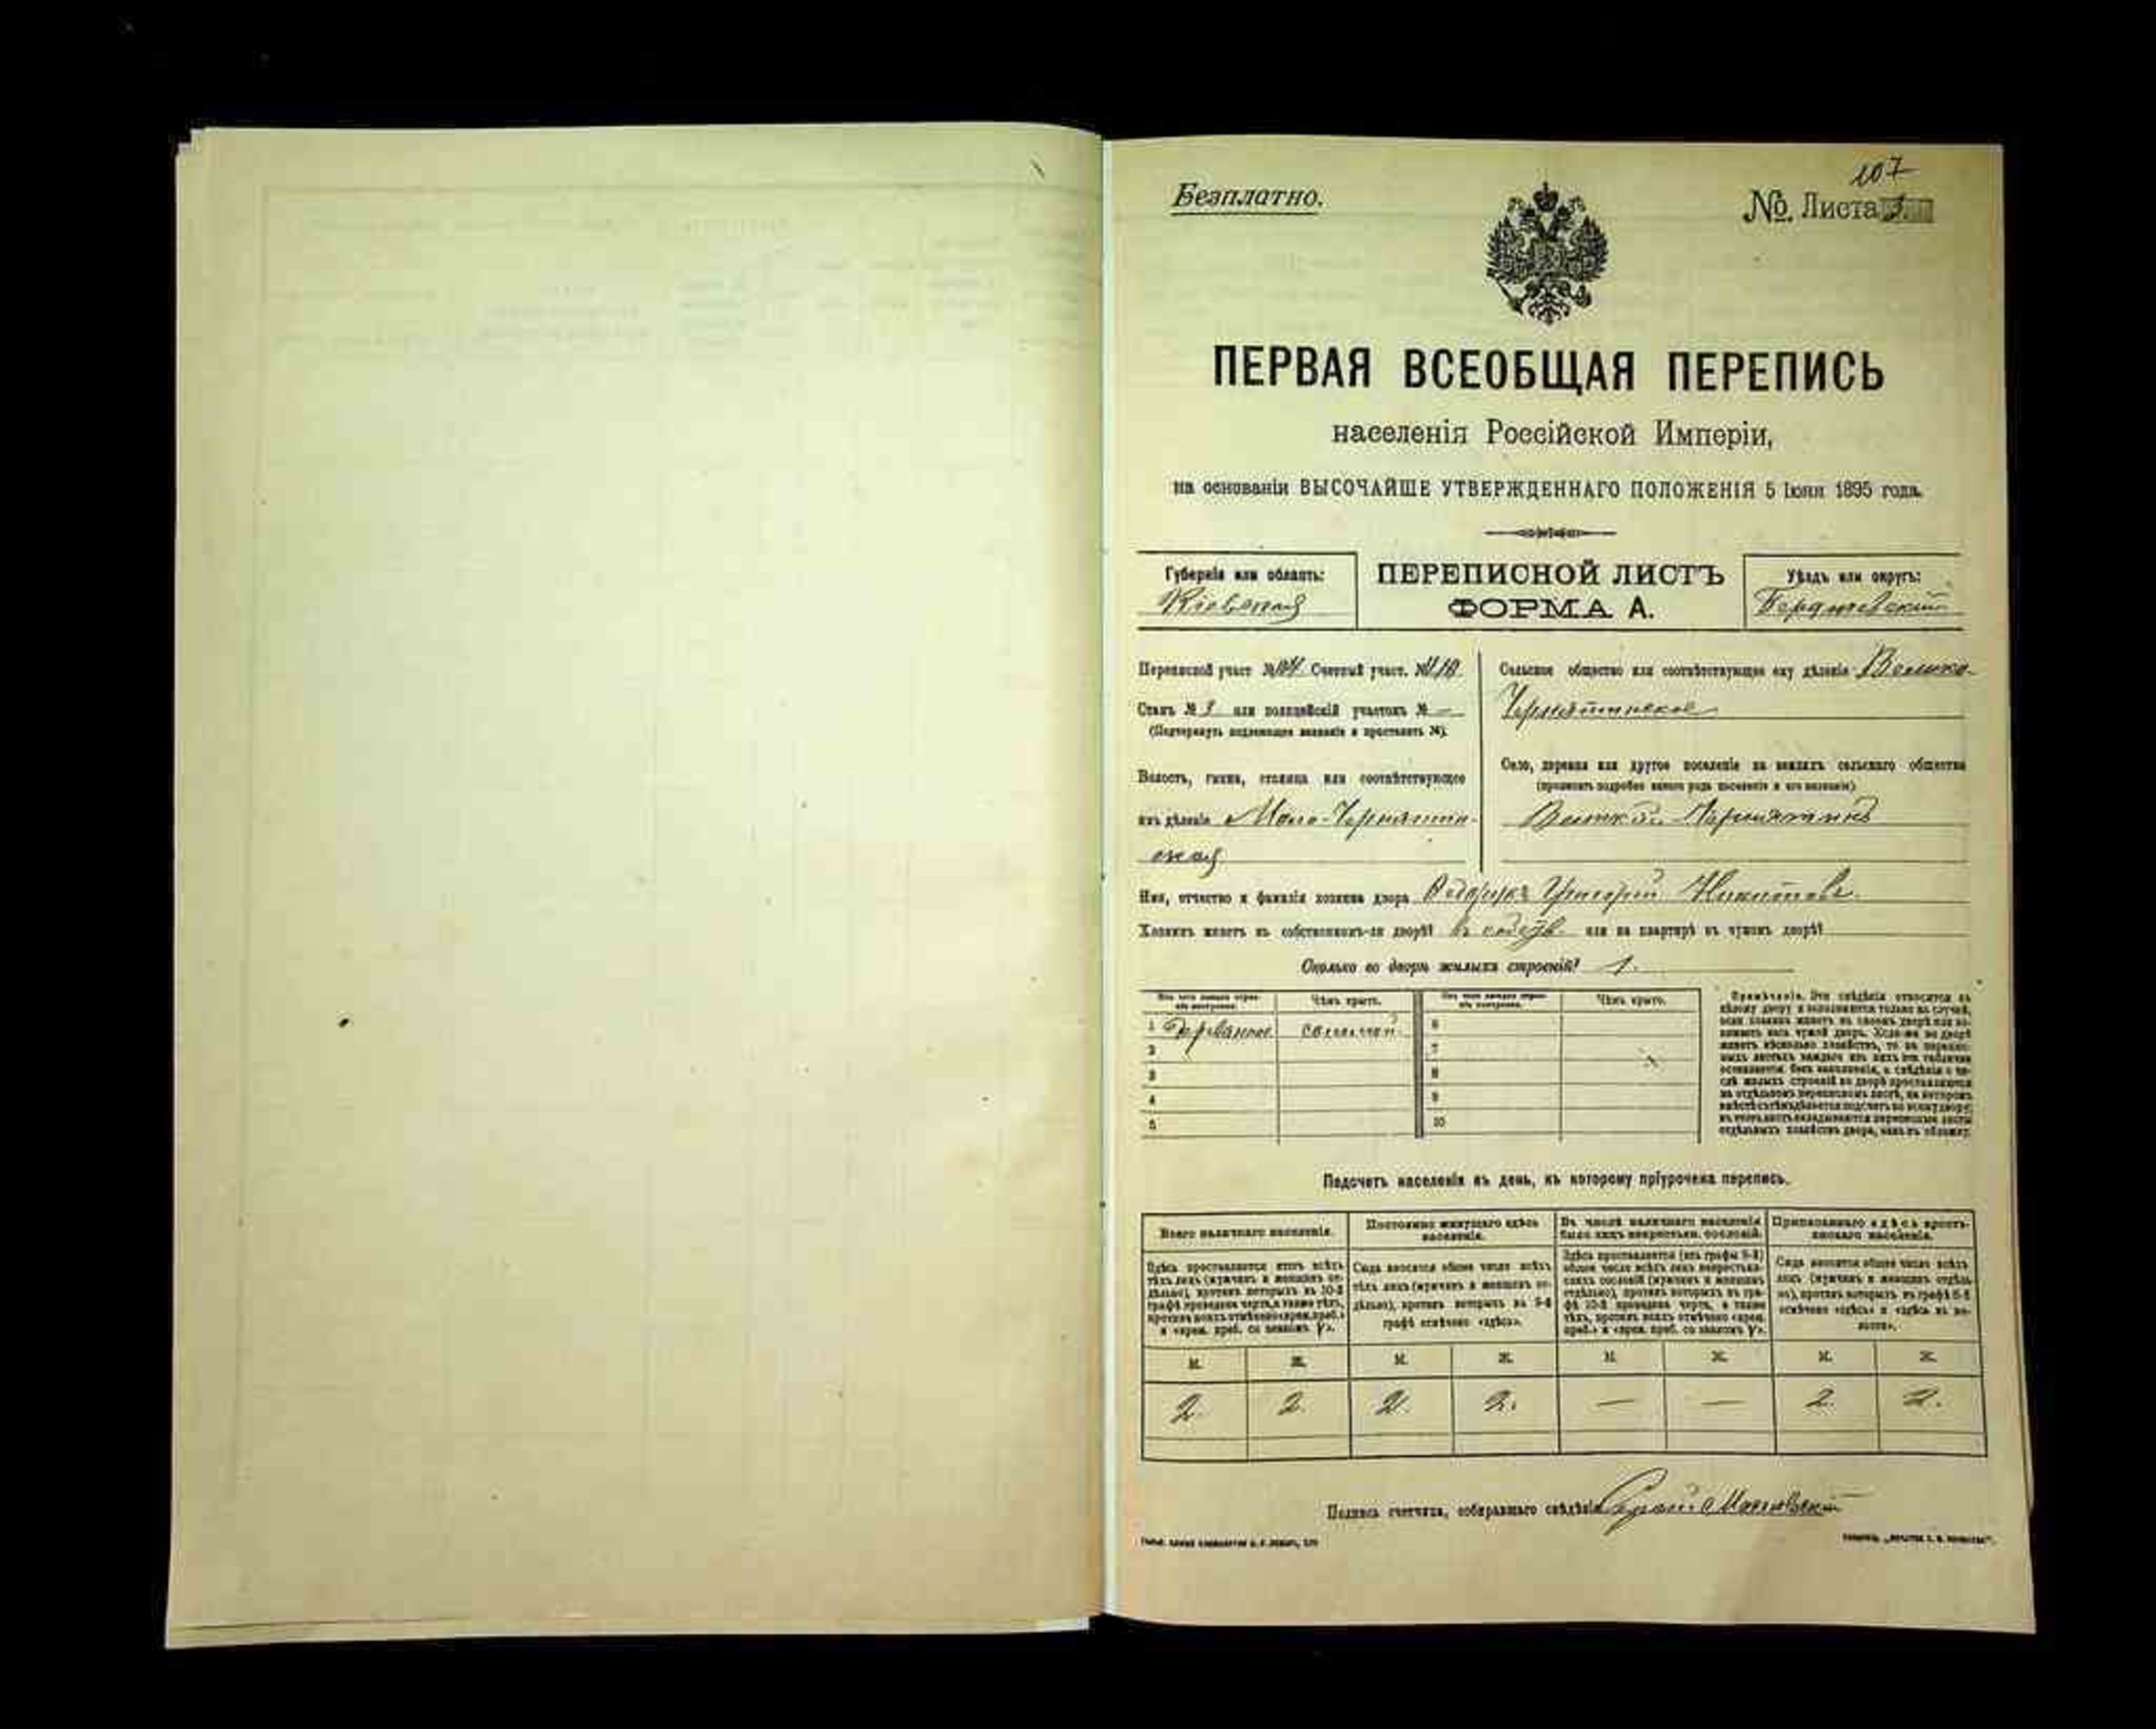 107
Безплатно.
№ Листа
ПЕРВАЯ ВСЕОБЩАЯ ПЕРЕПИСЬ
населенія Россійской Имперіи,
на основаніи ВЫСОЧАЙШЕ УТВЕРЖДЕННАГО ПОЛОЖЕНІЯ 5 Іюня 1895 года.
Губернія или область:
Кіевская
ПЕРЕПИСНОЙ ЛИСТЪ
ФОРМА А.
Уѣздъ или округъ:
Бердичевскій
Переписной участ. № Счетный участ. №
Сельское общество или соотвѣтствующее ему дѣленіе Велико-
Чернятинское
Станъ № 3 или полицейскій участокъ № —
(Подчеркнуть подлежащее названіе и проставить №).
Волость, гмина, станица или соотвѣтствующее
имъ дѣленіе Мало-Чернятин-
ская
Село, деревня или другое поселеніе на земляхъ сельскаго общества
(прописать подробно какого рода поселеніе и его названіе).
Чернятинъ
Имя, отчество и фамилія хозяина двора Григорій Никитовъ
Хозяинъ живетъ въ собственномъ-ли дворѣ? въ или на квартирѣ въ чужомъ дворѣ?
Сколько во дворѣ жилыхъ строеній? 1.
Чѣмъ крыто.
Чѣмъ крыто.
1 Деревянное соломой
2
3
4
5
6
7
8
9
10
Примѣчаніе. Эти свѣдѣнія относятся къ
цѣлому двору и заполняются только въ случаѣ,
если хозяинъ живетъ въ своемъ дворѣ или за-
нимаетъ весь чужой дворъ. Коли-же во дворѣ
живетъ нѣсколько хозяйствъ, то на перепис-
ныхъ листахъ каждаго изъ нихъ эти таблички
оставляются безъ заполненія, а свѣдѣнія о чи-
слѣ жилыхъ строеній во дворѣ проставляются
на отдѣльномъ переписномъ листѣ, на которомъ
отдѣльныхъ хозяйствъ двора, какъ въ обложку.
Подсчетъ населенія въ день, къ которому пріурочена перепись.
Всего наличнаго населенія.
Здѣсь проставляется итогъ всѣхъ
тѣхъ лицъ (мужчинъ и женщинъ от-
дѣльно), противъ которыхъ въ 10-й
графѣ проведена черта, а также тѣхъ,
противъ коихъ отмѣчено «врем. преб.»
и «врем. преб. со знакомъ V».
Постоянно живущаго здѣсь
населенія.
Сюда вносится общее число всѣхъ
тѣхъ лицъ (мужчинъ и женщинъ от-
дѣльно), противъ которыхъ въ 9-й
графѣ отмѣчено «здѣсь».
Въ числѣ наличнаго населенія
было лицъ некрестьян. сословій.
Здѣсь проставляется (изъ графы 9-й)
общее число всѣхъ лицъ некрестьян-
скихъ сословій (мужчинъ и женщинъ
отдѣльно), противъ которыхъ въ гра-
фѣ 10-й проведена черта, а также
тѣхъ, противъ коихъ отмѣчено «врем.
преб.» и «врем. преб. со знакомъ V».
Приписаннаго здѣсь кресть-
янскаго населенія.
Сюда вносится общее число всѣхъ
лицъ (мужчинъ и женщинъ отдѣль-
но), противъ которыхъ въ графѣ 8-й
отмѣчено «здѣсь» и «здѣсь въ во-
лости».
М. Ж. М. Ж. М. Ж. М. Ж.
2. 2. 2. 2. — — 2. 2.
Подпись счетчика, собиравшаго свѣдѣнія